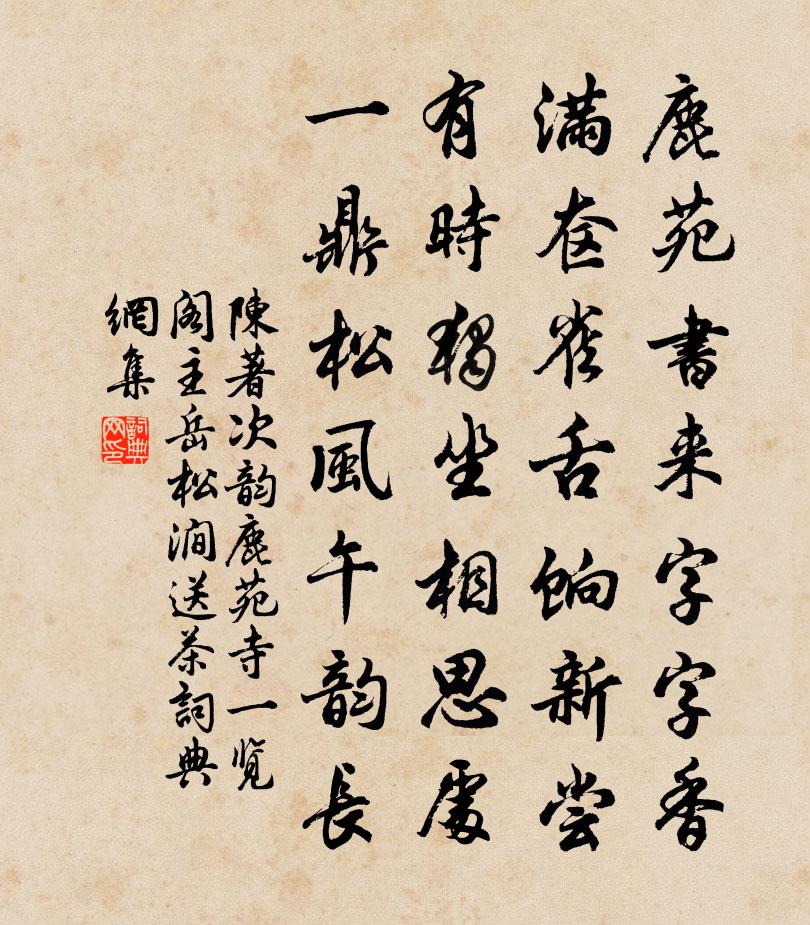 鹿苑書来字字香
滿奁雀舌餉新尝
有時獨坐相思處
一鼎松風午韵長
陳著次韵鹿苑寺一览
阁主岳松澗送茶詞典
網集
詞典
网印